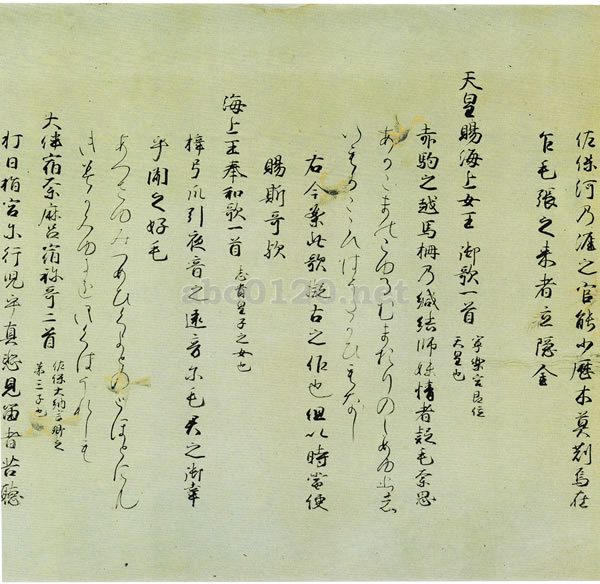 佐保河乃涯之官能少歴木莫刈烏在
乍毛張之来者立隠金
天皇賜海上女王御歌一首 寧楽宮即位
天皇也
赤駒之越馬柵乃緘結師妹情者疑毛奈思
あかこまのこゆるむまをりのしめゆひし
いもかこゝろはうたかひもなし
右今案此歌擬古之作也但以時當便
賜斯哥歟
海上王奉和歌一首 志貴皇子之女也
梓弓爪引夜音之遠音尓毛君之御幸
乎聞之好毛
あつさゆみつまひくよとのとほとにも
大伴宿奈麻呂宿祢哥二首 佐保大納言卿之
第三子也
打日指宮尓行児乎真悲見留者苦聴
abc0120.net